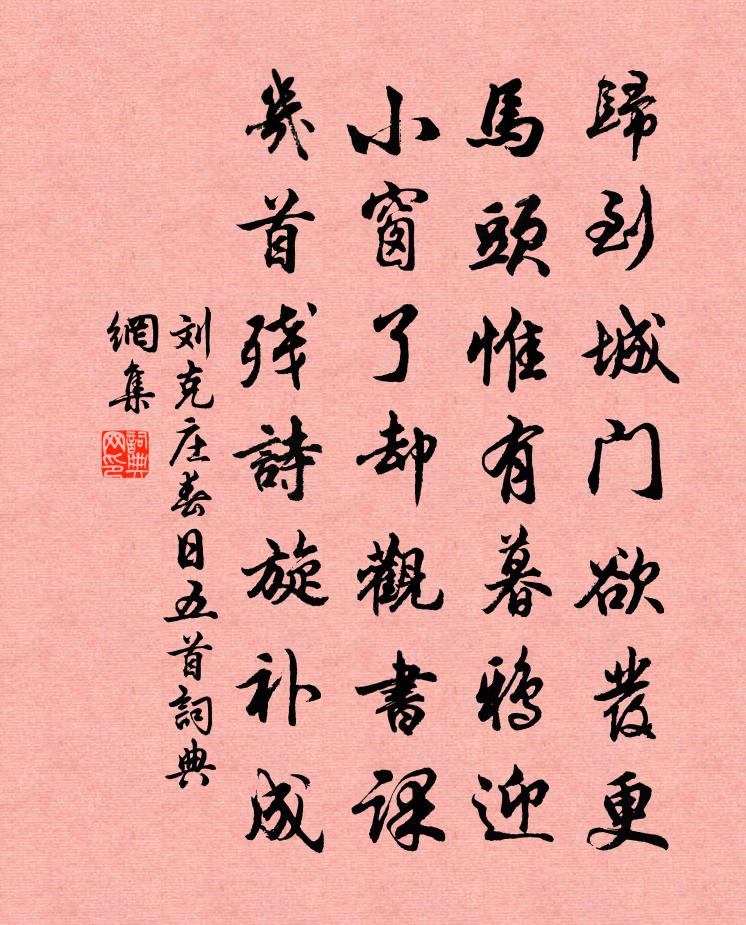 歸到城门欲發更
馬頭惟有暮鴉迎
小窗了却觀書課
幾首残詩旋补成
刘克庄春日五首詞典
網集
詞典网印